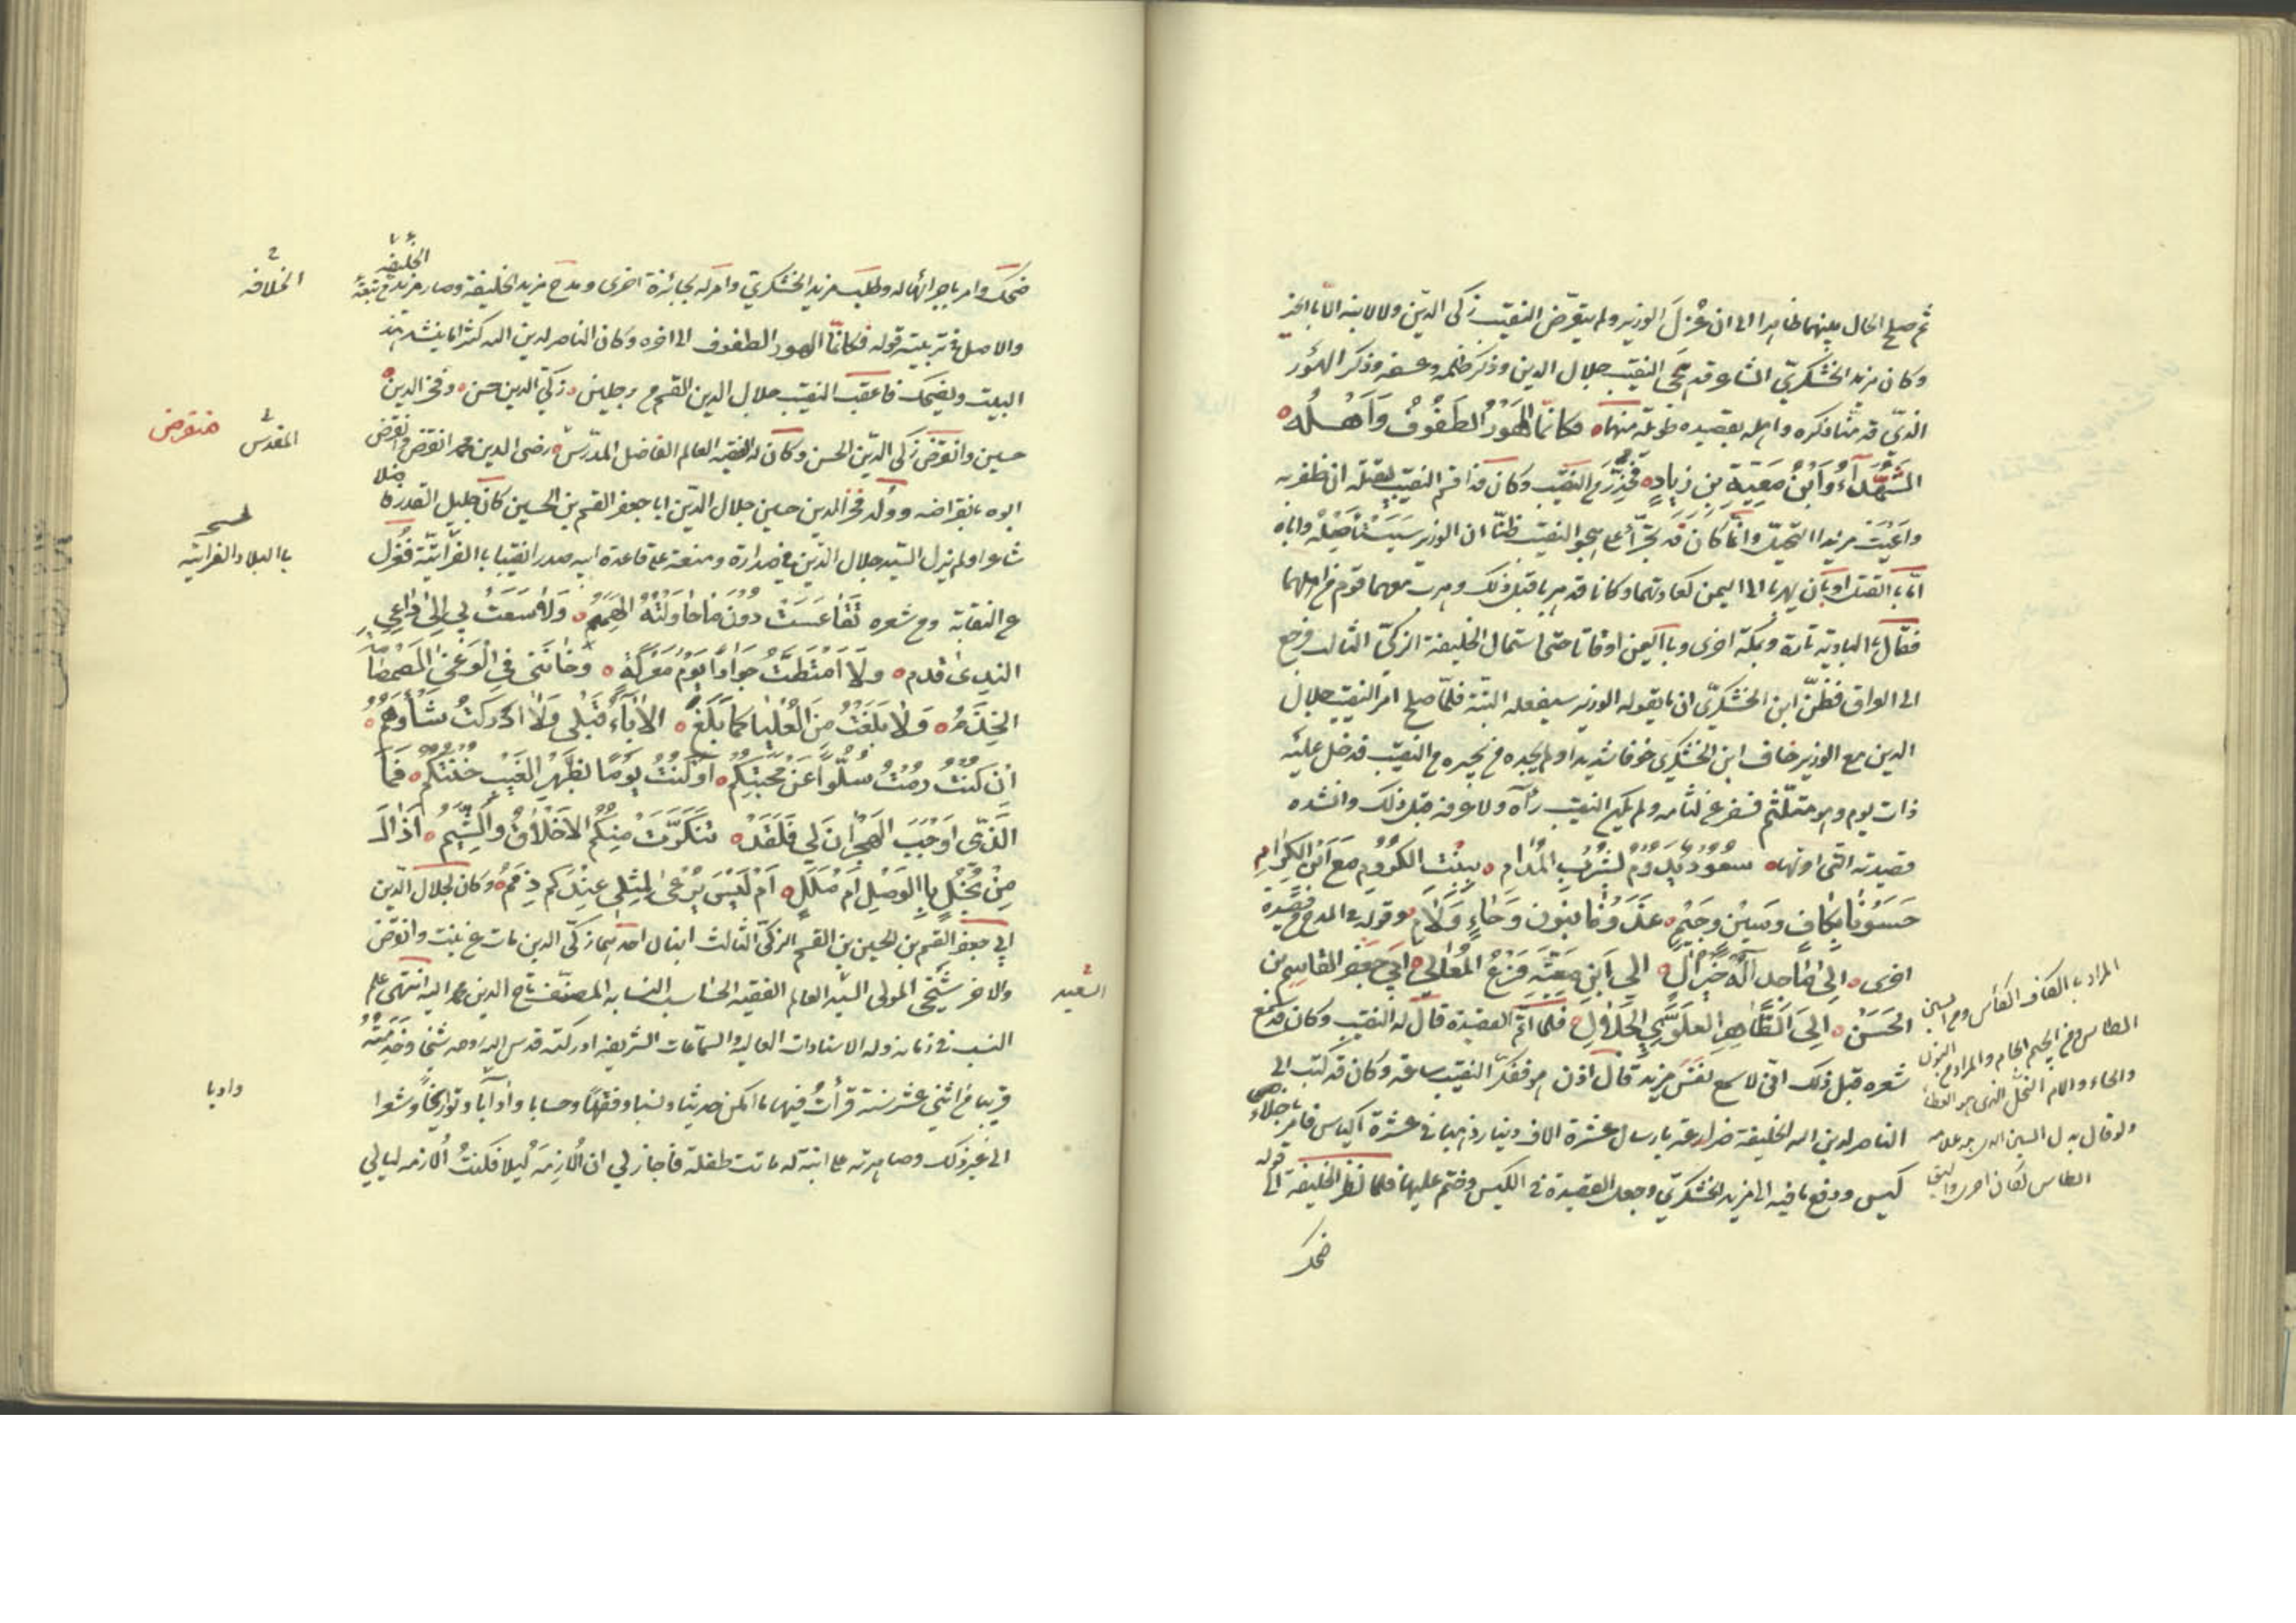 ثم صلح الحال بينهما ظاهرا الى ان عزل الوزير ولم يتعرّض النقيب زكى الدّين ولا لابنه الّا بالخير
وكان مزيد الخشكريّ الشاعر قد هجى النقيب جلال الدين وذكر ظلمه وعسفه وذكر الهور
الذيّ قدمنا ذكره واهله بقصيده طويلة منها فكانمّا الهَوْرُ الطَفُوفُ وَاَهْلُه
الشُهَداءُ وَابْنُ مَعَيَّةِ بن زِيادِ النقيب وكان قد اقسم النقيب بقتله ان ظفر به
واعيت مزيدا الحِيَل وانّما كان قد تجرّأ على هجو النقيب ظنّا ان الوزير سيستأصله واباه
امّا بالقتل او بان يهربا الى اليمن كعادتهما وكانا قد هربا قبل ذلك وهرب معهما قوم من اهلهما
تارة وبمكّة اخرى وباليمن اوقاتا حتى استمال الخليفة الزكىّ الثالث فرجع
الى العراق فظنّ ابن الخشكريّ ان ما يقوله الوزير سيفعله البتّة فلمّا صلح امر النقيب جلال
الدين مع الوزير خاف ابن الخشكرى خوفا شديدا ولم يجد من يجيره من النقيب فدخل عليه
ذات يوم وهو متلثّم فسفر عن لثامه ولم يكن النقيب رآه ولا عرفه قبل ذلك وانشده
قصيدته التى اولها سعود يدوم لشرب المدام ببنت الكروم مع ابن الكرام
حَسَوْنا بكاف وسين وجيم عَدَونا بنون وحاء ولام وقوله فى المدح من قصيدة
اخرى الى ماجد الى ابن معيّة فرع المعالى ابى جعفر القاسم بن
الحَسَنْ الى الطاهر العلوىّ الجلال فلما اتمّ القصيدة قال له النقيب وكان قد سمع
شعره قبل ذلك انّى لاسمع نفس مزيد قال اذن هو ففكّر النقيب ساعة وكان قد كتب الى
الناصر لدين الله الخليفة بارسال عشرة الاف دينار ذهبا فى عشرة اكياس فامر
كيس ودفع ما فيه الى مزيد الخشكريّ وجعل القصيدة فى الكيس وختم عليها فلما نظر الخليفة الى
ضحك
المراد بالكاف الكأس ومن السين
الطاس ومن الجيم الجام والمراد من النون
والحاء واللام النحل الذى هو العطاء
ولو قال بدل السين
الطاس لكان احرى واليق
ضحك وامر باجرائها له وطلب مزيد الخشكريّ وامر له بجائزة اخرى ومدح مزيد الخليفة وصار
الخليفة
الخلافة
والاصل فى تربيته قوله فكانمّا الهور الطفوف الى اخره وكان الناصر لدين الله كثيرا ما ينشد هذا
البيت ويضحك فاعقب النقيب جلال الدين القسم من رجلين زكىّ الدين حسن وفخر الدين
حسين وانقرض زكى الدّين الحسن وكان له الفقيه العالم الفاضل المدرّس رضى الدين محمد انقرض وانقرض
المقدس
منقرض
ابوه بانقراضه وولد فخر الدين حسين جلال الدّين ابا جعفر القسم بن الحسين كان جليل القدر
شاعرا ولم يزل السّيد جلال الدّين فى صدارة ومنعة على قاعدة ابيه صدر النقبا بالفراتيّة فعُزل
بالبلاد الفراتيه
عن النقابة ومن شعره تَقاعَسَتْ دون ما حاولته الهِمَمُ وَلا سَعَتْ بي الى داعي
النِدى قدم ولا امتطيت جوادا يوم معركة وخانني في الوغى الصَمصامة
الخِذَم وَلا بلغت من العليا كما بلغ الاباء قبلى ولا ادركت شأوهم
ان كنت رمت سلوّا عن محبتكم او كنت يوما بظهر الغيب خنتكم فما
الّذي اوجب الهجران لي فلقد تنكرت منكم الاخلاق والشيم اذاك
من بخل بالوصل ام ملل ام ليس يرعى لمثلى عندكم ذمم وكان لجلال الدّين
ابي جعفر القسم بن الحسين بن القسم الزكىّ الثالث ابنان احدهما زكىّ الدين مات عن بنت وانقرض
والاخر شيخى المولى السيّد العالم الفقيه الحاسب النسابه المصنّف تاج الدين محمد اليه انتهى علم
السعيد
النسب فى زمانه وله الاسنادات العاليه والسماعات الشريفه ادركته قدس الله روحه شيخا وخدمته
قريبا من اثني عشر سنة قرأت فيها ما امكن حديثا ونسبا وفقها وحسابا وادآبا وتواريخا وشعرا
وادبا
الى غير ذلك وصاهرته على ابنة له ماتت طفلة فاجاز لي ان اُلازِمَهُ ليلا فكنت الازمه ليالي